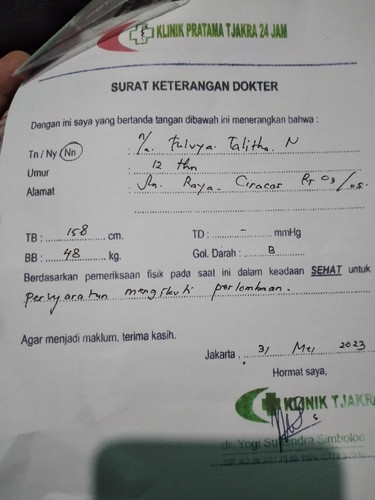 KLINIK PRATAMA TJAKRA 24 JAM
SURAT KETERANGAN DOKTER
Dengan ini saya yang bertanda tangan dibawah ini menerangkan bahwa :
Tn / Ny / Nn : Fulvya Talitha. N
Umur : 12 thn
Alamat : Jln. Raya. Ciracas RT 03/05.
TB : 158 cm. TD : - mmHg
BB : 48 kg. Gol. Darah : B
Berdasarkan pemeriksaan fisik pada saat ini dalam keadaan SEHAT untuk
persyaratan mengikuti perlombaan.
Agar menjadi maklum. terima kasih.
Jakarta, 31 Mei 2023
Hormat saya,
KLINIK TJAKRA
dr. Yogi Simbolon